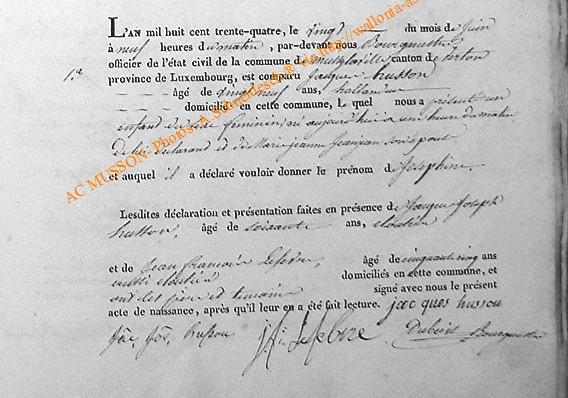 L'AN mil huit cent trente-quatre, le vingt du mois de juin
à neuf heures du matin, par-devant nous Bourgmestre
officier de l'état civil de la commune de canton de
province de Luxembourg, est comparu Jacques husson
âgé de ans,
domicilié en cette commune, Lequel nous a présenté un
enfant de sexe féminin, né aujourd'hui à une heure du matin
de lui déclarant et de Marie Jeanne son épouse
et auquel il a déclaré vouloir donner le prénom de Joséphine.
Lesdites déclaration et présentation faites en présence de Jacques Joseph
husson, âgé de soixante ans, cloutier
et de Jean François Lefebvre, âgé de cinquante cinq ans
aussi cloutier domiciliés en cette commune, et
ont les père et témoins signé avec nous le présent
acte de naissance, après qu'il leur en a été fait lecture. jacques husson
husson Lefebvre Bourgmestre
AC MUSSON - Photos: A. via http://wallonia-as